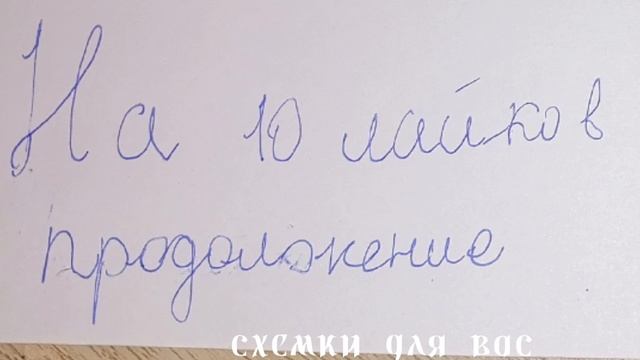 На 10 лайков
продолжение
схемки для вас